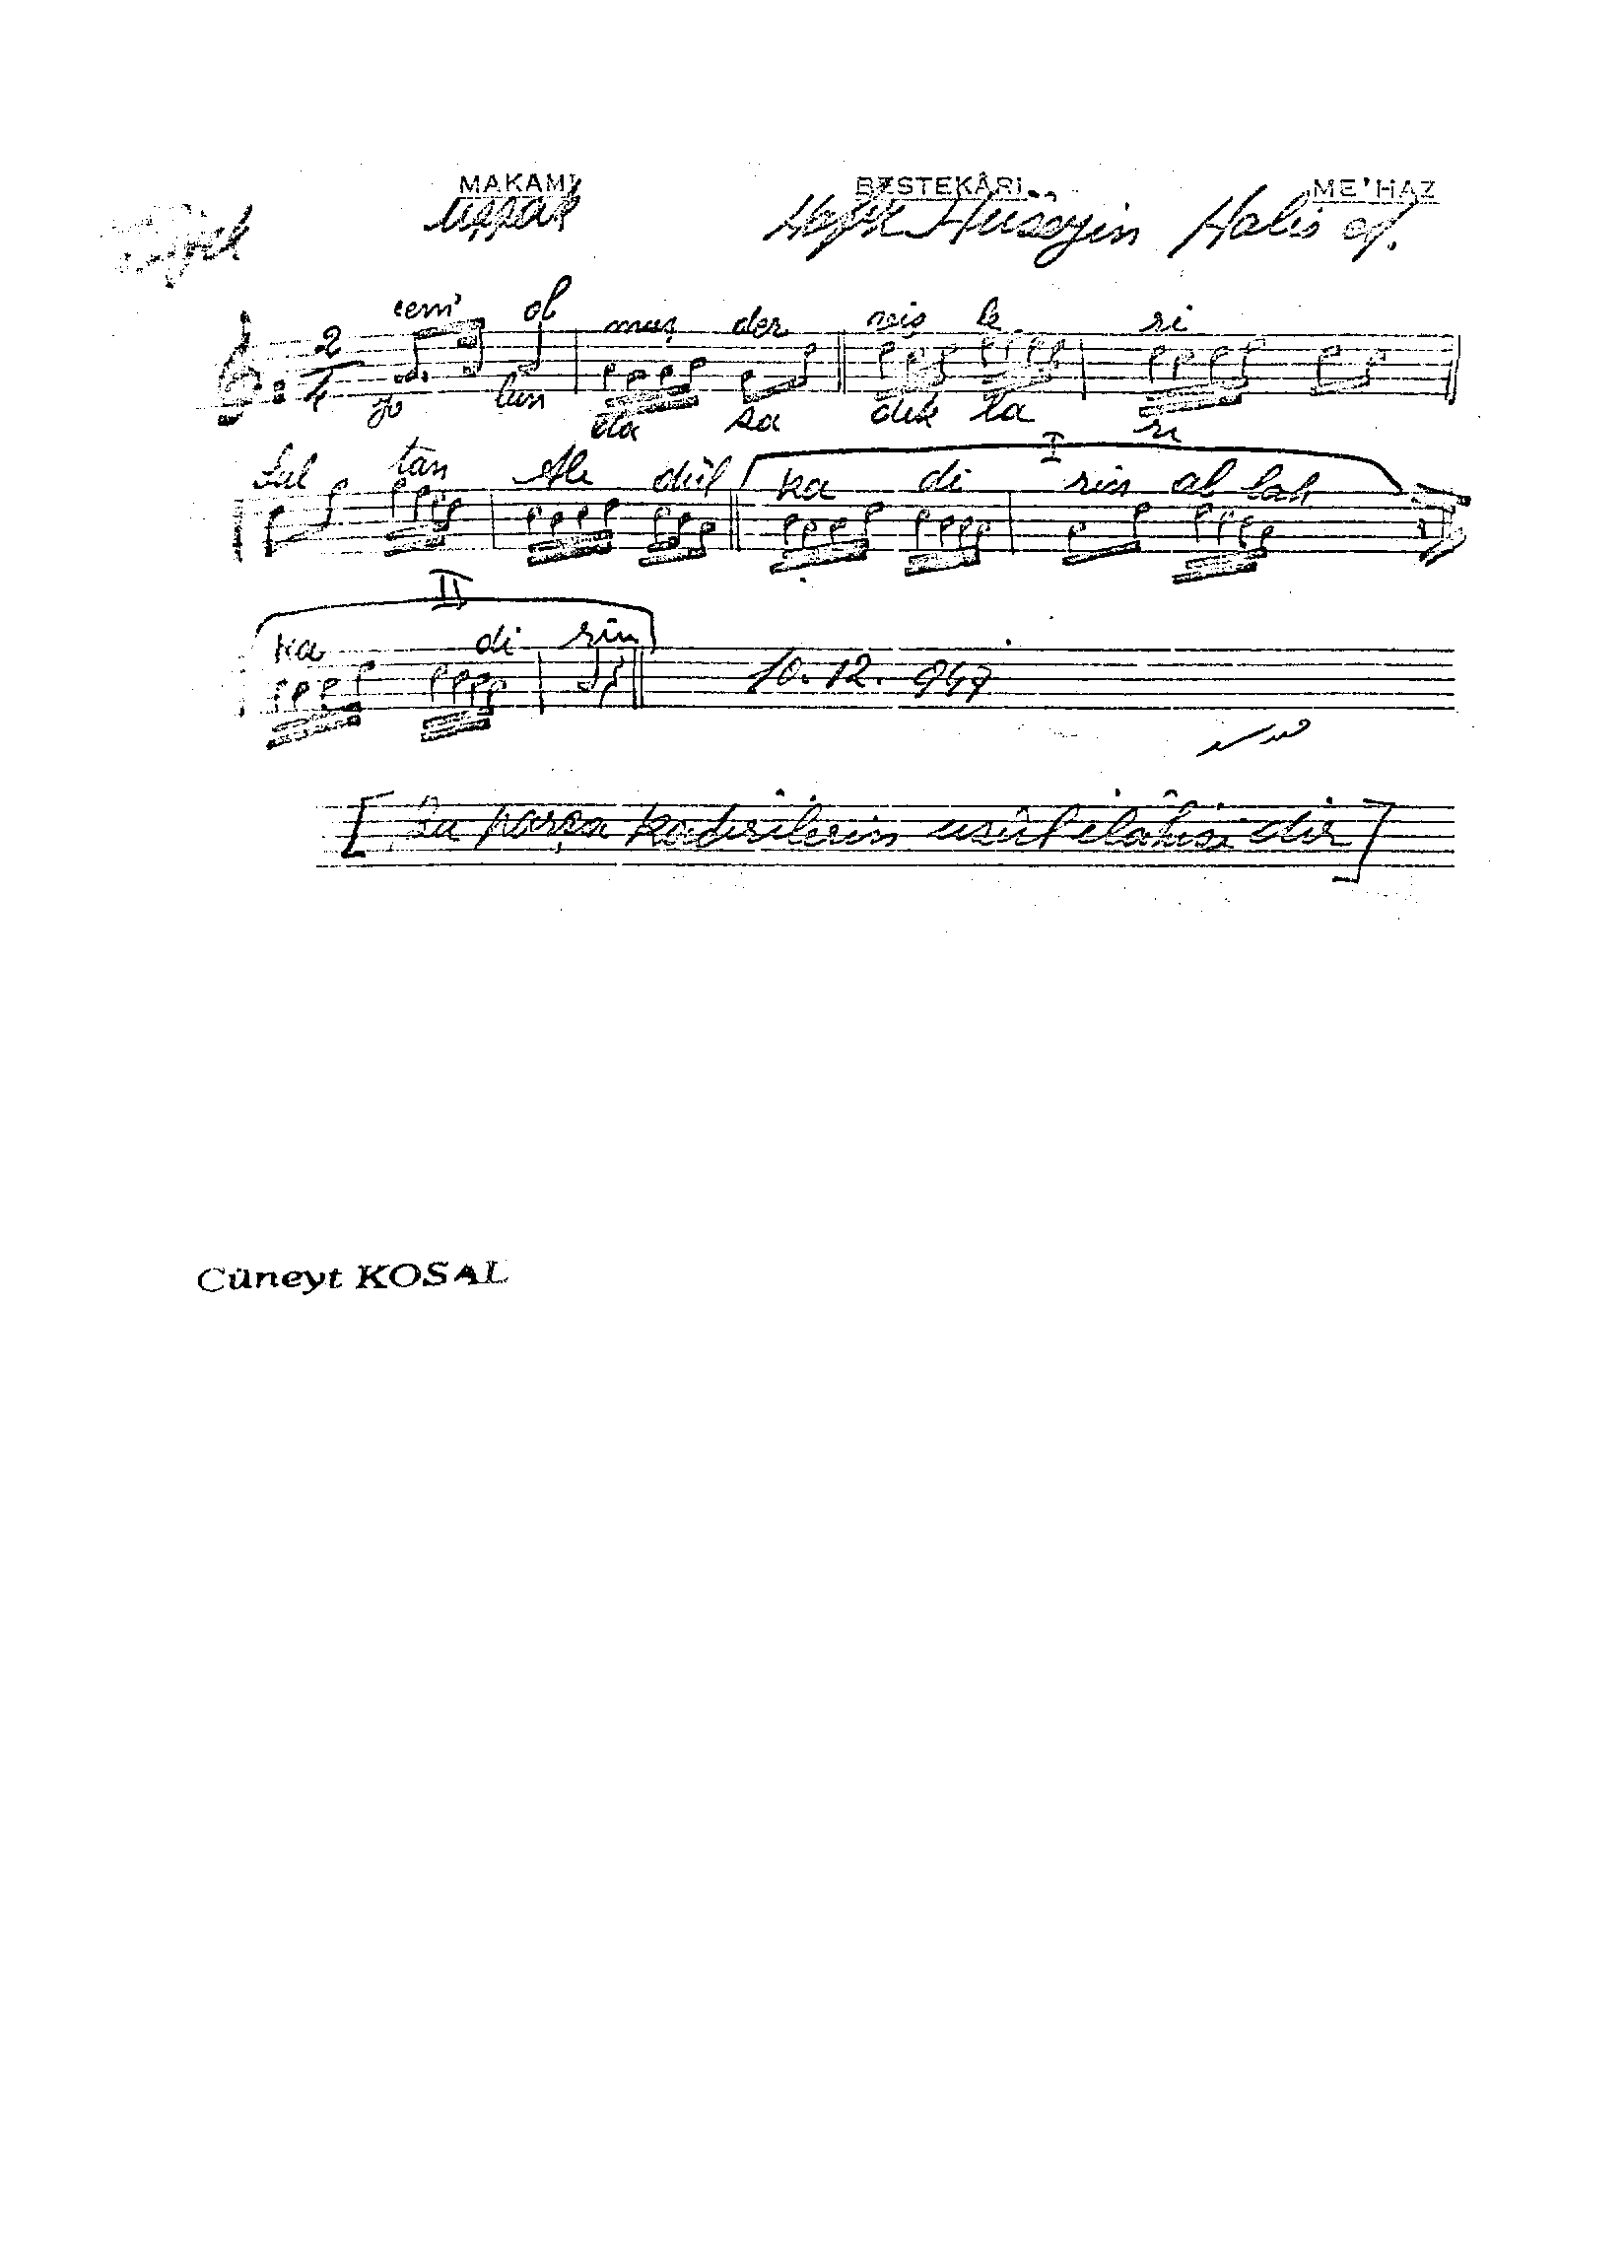 MAKAMI BESTEKÂRI ME'HAZ
uşşak Hafız Hüseyin Halis ef.
cem' ol muş der veiş le ri
2
4
yo lun da sa dık la rı
I
Sul tan Ab dül ka di rin al lah
II
ka di rin
10.12.947
[Bu parça kadirilerin usûl ilâhisi dir]
Cüneyt KOSAL